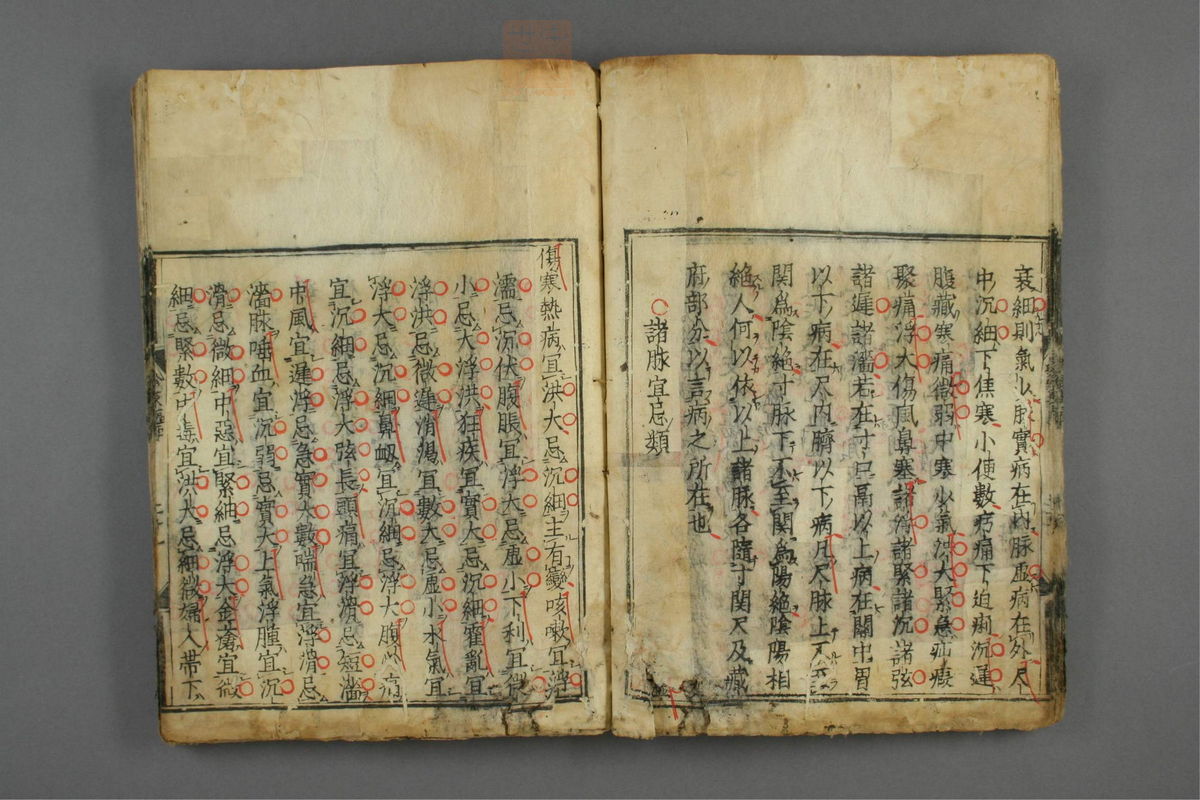 衰細則氣少脉實病在内脉虚病在外尺
中沉細下焦寒小便數疼痛下迫痢沉遲
腹藏寒痛微弱中寒少氣洪大緊急疝瘕
聚痛浮大傷風鼻寒諸滑諸緊諸沉諸弦
諸遲諸濇若在寸口膈以上病在關中胃
以下病在尺内臍以下病凡尺脉上不至
関爲陰絶寸脉下不至関爲陽絶陰陽相
絶人何以依以上諸脉各隨寸関尺及藏
府部分以言病之所在也
○諸脉宜忌類
傷寒熱病宜洪大忌沉細主有變咳嗽宜浮
濡忌沉伏腹脹宜浮大忌虚小下利宜微
小忌大浮洪狂疾宜實大忌沉細霍亂宜
浮洪忌微遲消渇宜數大忌虚小水氣宜
浮大忌沉細鼻衂宜沉細忌浮大腹心痛
宜沉細忌浮大弦長頭痛宜浮滑忌短濇
中風宜遲浮忌急實大數喘急宜浮滑忌
濇脉唾血宜沉弱忌實大上氣浮腫宜沉
滑忌微細中惡宜緊細忌浮大金瘡宜微
細忌緊數中毒宜洪大忌細微婦人帶下